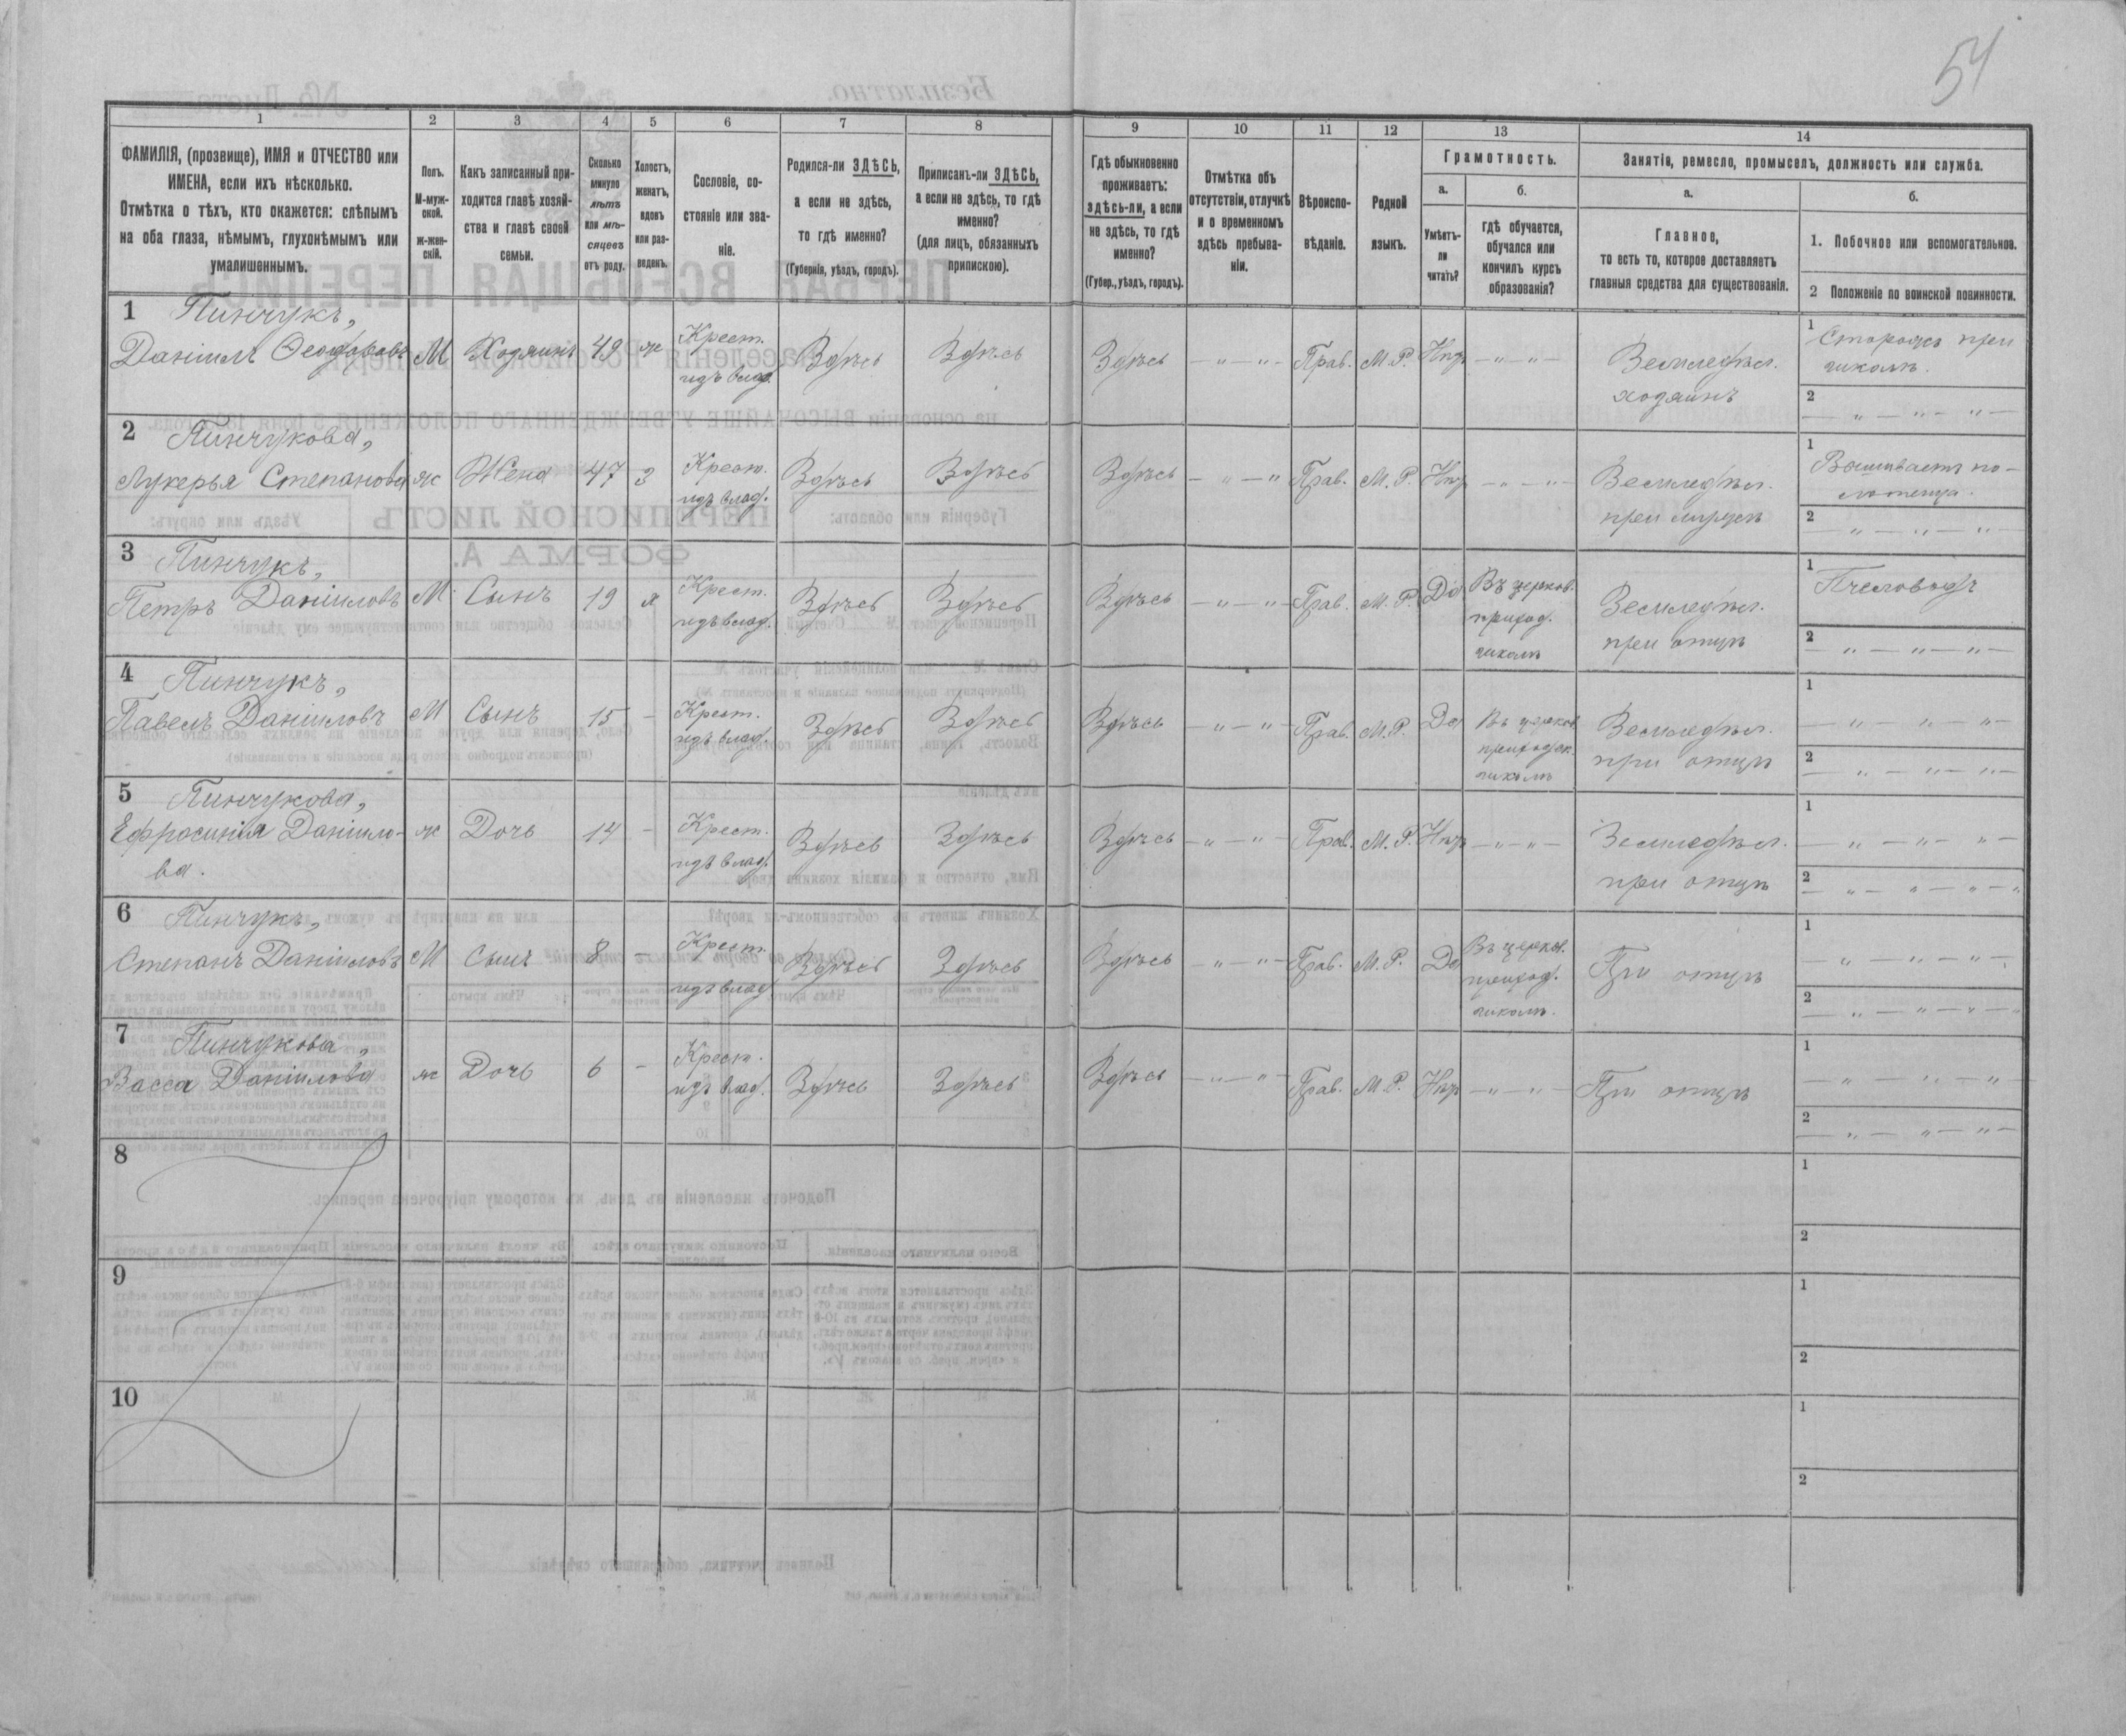 54
1 2 3 4 5 6 7 8 9 10 11 12 13 14
ФАМИЛІЯ, (прозвище), ИМЯ и ОТЧЕСТВО или
ИМЕНА, если ихъ нѣсколько.
Отмѣтка о тѣхъ, кто окажется: слѣпымъ
на оба глаза, нѣмымъ, глухонѣмымъ или
умалишеннымъ.
Полъ.
М-муж-
ской.
ж-жен-
скій.
Какъ записанный при-
ходится главѣ хозяй-
ства и главѣ своей
семьи.
Сколько
минуло
лѣтъ
или мѣ-
сяцевъ
отъ роду.
Холостъ,
женатъ,
вдовъ
или раз-
веденъ.
Сословіе, со-
стояніе или зва-
ніе.
Родился-ли ЗДѢСЬ,
а если не здѣсь,
то гдѣ именно?
(Губернія, уѣздъ, городъ).
Приписанъ-ли ЗДѢСЬ,
а если не здѣсь, то гдѣ
именно?
(для лицъ, обязанныхъ
припискою).
Гдѣ обыкновенно
проживаетъ:
здѣсь-ли, а если
не здѣсь, то гдѣ
именно?
(Губер., уѣздъ, городъ).
Отмѣтка объ
отсутствіи, отлучкѣ
и о временномъ
здѣсь пребыва-
ніи.
Вѣроиспо-
вѣданіе.
Родной
языкъ.
Грамотность.
а.
Умѣетъ-
ли
читать?
б.
гдѣ обучается,
обучался или
кончилъ курсъ
образованія?
Занятіе, ремесло, промыселъ, должность или служба.
а.
Главное,
то есть то, которое доставляетъ
главныя средства для существованія.
б.
1. Побочное или вспомогательное.
2 Положеніе по воинской повинности.
1 Пинчукъ,
Даніилъ Ѳеодоровъ М Хозяинъ 49 ж Крест.
изъ влад. Здѣсь Здѣсь Здѣсь — „ — „ — Прав. М.Р. Нѣтъ — „ — „ — Земледѣл.
хозяинъ
1 Сторожъ при
школѣ.
2 — „ — „ — „ —
2 Пинчукова,
Лукерья Степанова ж Жена 47 З Крест.
изъ влад. Здѣсь Здѣсь Здѣсь — „ — „ Прав. М.Р. Нѣтъ — „ — „ — Земледѣл.
при мужѣ
1 Вышиваетъ по-
лотенца.
2 — „ — „ — „ —
3 Пинчукъ,
Петръ Даніиловъ М Сынъ 19 х Крест.
изъ влад. Здѣсь Здѣсь Здѣсь — „ — „ — Прав. М.Р. Да Въ церков.
приход.
школѣ Земледѣл.
при отцѣ
1 Пчеловодъ
2 — „ — „ — „ —
4 Пинчукъ,
Павелъ Даніиловъ М Сынъ 15 — Крест.
изъ влад. Здѣсь Здѣсь Здѣсь — „ — „ — Прав. М.Р. Да Въ церков.
приходск.
школѣ Земледѣл.
при отцѣ
1 — „ — „ — „ —
2 — „ — „ — „ —
5 Пинчукова,
Ефросинія Даніило-
ва. ж Дочь 14 — Крест.
изъ влад. Здѣсь Здѣсь Здѣсь — „ — „ — Прав. М.Р. Нѣтъ — „ — „ — Земледѣл.
при отцѣ
1 — „ — „ — „ —
2 — „ — „ — „ — „
6 Пинчукъ,
Степанъ Даніиловъ М Сынъ 8 — Крест.
изъ влад. Здѣсь Здѣсь Здѣсь — „ — „ — Прав. М.Р. Да Въ церков.
приход.
школѣ. При отцѣ
1 — „ — „ — „ —
2 — „ — „ — „ — „
7 Пинчукова,
Васса Даніилова ж Дочь 6 — Крест.
изъ влад. Здѣсь Здѣсь Здѣсь — „ — „ — Прав. М.Р. Нѣтъ — „ — „ — При отцѣ
1 — „ — „ — „
2 — „ — „ — „ —
8
1
2
9
1
2
10
1
2